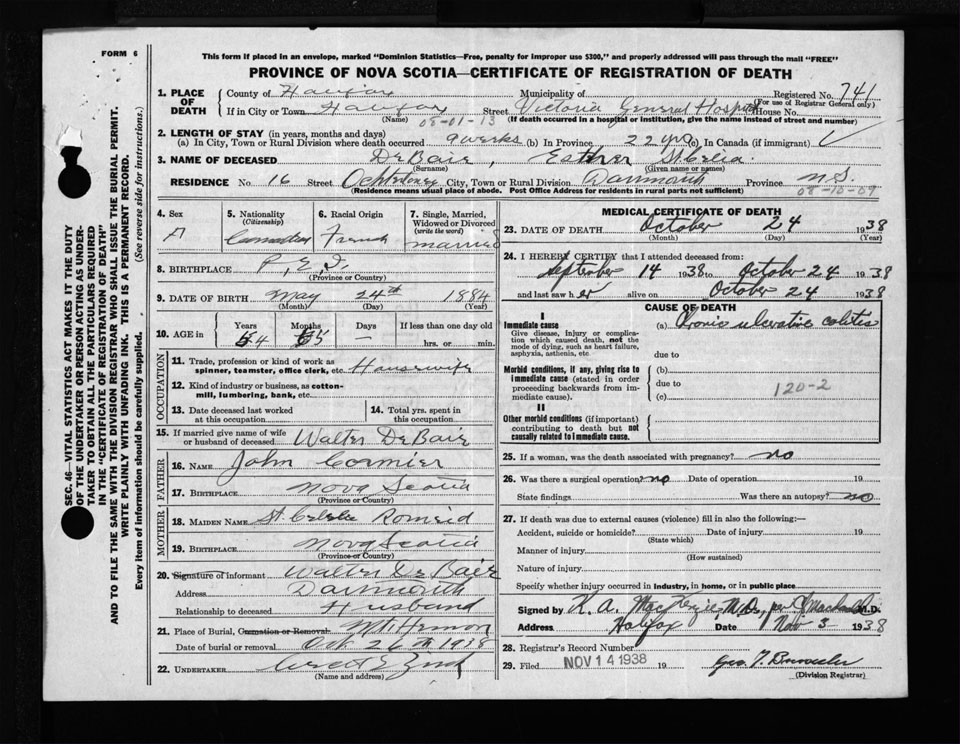 FORM 6
This form if placed in an envelope, marked "Dominion Statistics—Free, penalty for improper use $300," and properly addressed will pass through the mail "FREE"
PROVINCE OF NOVA SCOTIA—CERTIFICATE OF REGISTRATION OF DEATH
1. PLACE OF DEATH County of Halifax Municipality of Registered No. 741
(For use of Registrar General only)
If in City or Town Halifax Street Victoria General Hospital House No.
(Name) 08-01-13 (If death occurred in a hospital or institution, give the name instead of street and number)
2. LENGTH OF STAY (in years, months and days)
(a) In City, Town or Rural Division where death occurred 9 weeks (b) In Province 22 yrs (c) In Canada (if immigrant)
3. NAME OF DECEASED DeBaie, Esther St. Celia
(Surname) (Given name or names)
RESIDENCE No. 16 Street City, Town or Rural Division Darmouth Province N.S.
(Residence means usual place of abode. Post Office Address for residents in rural parts not sufficient) 08-10-09
4. Sex
5. Nationality (Citizenship) Canadian
6. Racial Origin French
7. Single, Married, Widowed or Divorced (write the word) married
8. BIRTHPLACE P.E.I.
(Province or Country)
9. DATE OF BIRTH May 24th 1884
(Month) (Day) (Year)
10. AGE in Years 54 Months 5 Days — If less than one day old hrs. or min.
OCCUPATION
11. Trade, profession or kind of work as spinner, teamster, office clerk, etc. Housewife
12. Kind of industry or business, as cotton-mill, lumbering, bank, etc.
13. Date deceased last worked at this occupation
14. Total yrs. spent in this occupation
15. If married give name of wife or husband of deceased Walter DeBaie
FATHER
16. NAME John Cormier
17. BIRTHPLACE Nova Scotia
MOTHER
18. MAIDEN NAME
19. BIRTHPLACE Nova Scotia
(Province or Country)
20. Signature of informant Walter DeBaie
Address Darmouth
Relationship to deceased Husband
21. Place of Burial, Cremation or Removal Mt. Hermon
Date of burial or removal Oct. 26th 1938
22. UNDERTAKER
(Name and address)
MEDICAL CERTIFICATE OF DEATH
23. DATE OF DEATH October 24 1938
(Month) (Day) (Year)
24. I HEREBY CERTIFY that I attended deceased from
September 14 1938 to October 24 1938
and last saw her alive on October 24 1938
CAUSE OF DEATH
I
Immediate cause
Give disease, injury or complication which caused death, not the mode of dying, such as heart failure, asphyxia, asthenia, etc.
(a) Chronic ulcerative colitis
due to
Morbid conditions, if any, giving rise to immediate cause (stated in order proceeding backwards from immediate cause).
(b)
due to
120-2
(c)
II
Other morbid conditions (if important) contributing to death but not causally related to immediate cause.
25. If a woman, was the death associated with pregnancy? no
26. Was there a surgical operation? no Date of operation 19
State findings Was there an autopsy? no
27. If death was due to external causes (violence) fill in also the following:—
Accident, suicide or homicide? Date of injury 19
(State which)
Manner of injury
(How sustained)
Nature of injury
Specify whether injury occurred in industry, in home, or in public place
Signed by K. A. MacKenzie M.D., per M.D.
Address Halifax Date Nov 3 1938
28. Registrar's Record Number
29. Filed NOV 14 1938 19
(Division Registrar)
SEC. 46—VITAL STATISTICS ACT MAKES IT THE DUTY
OF THE UNDERTAKER OR PERSON ACTING AS UNDER-
TAKER TO OBTAIN ALL THE PARTICULARS REQUIRED
IN THE "CERTIFICATE OF REGISTRATION OF DEATH"
AND TO FILE THE SAME WITH THE DIVISION REGISTRAR WHO SHALL ISSUE THE BURIAL PERMIT.
WRITE PLAINLY WITH UNFADING INK. THIS IS A PERMANENT RECORD.
Every item of information should be carefully supplied. (See reverse side for instructions.)